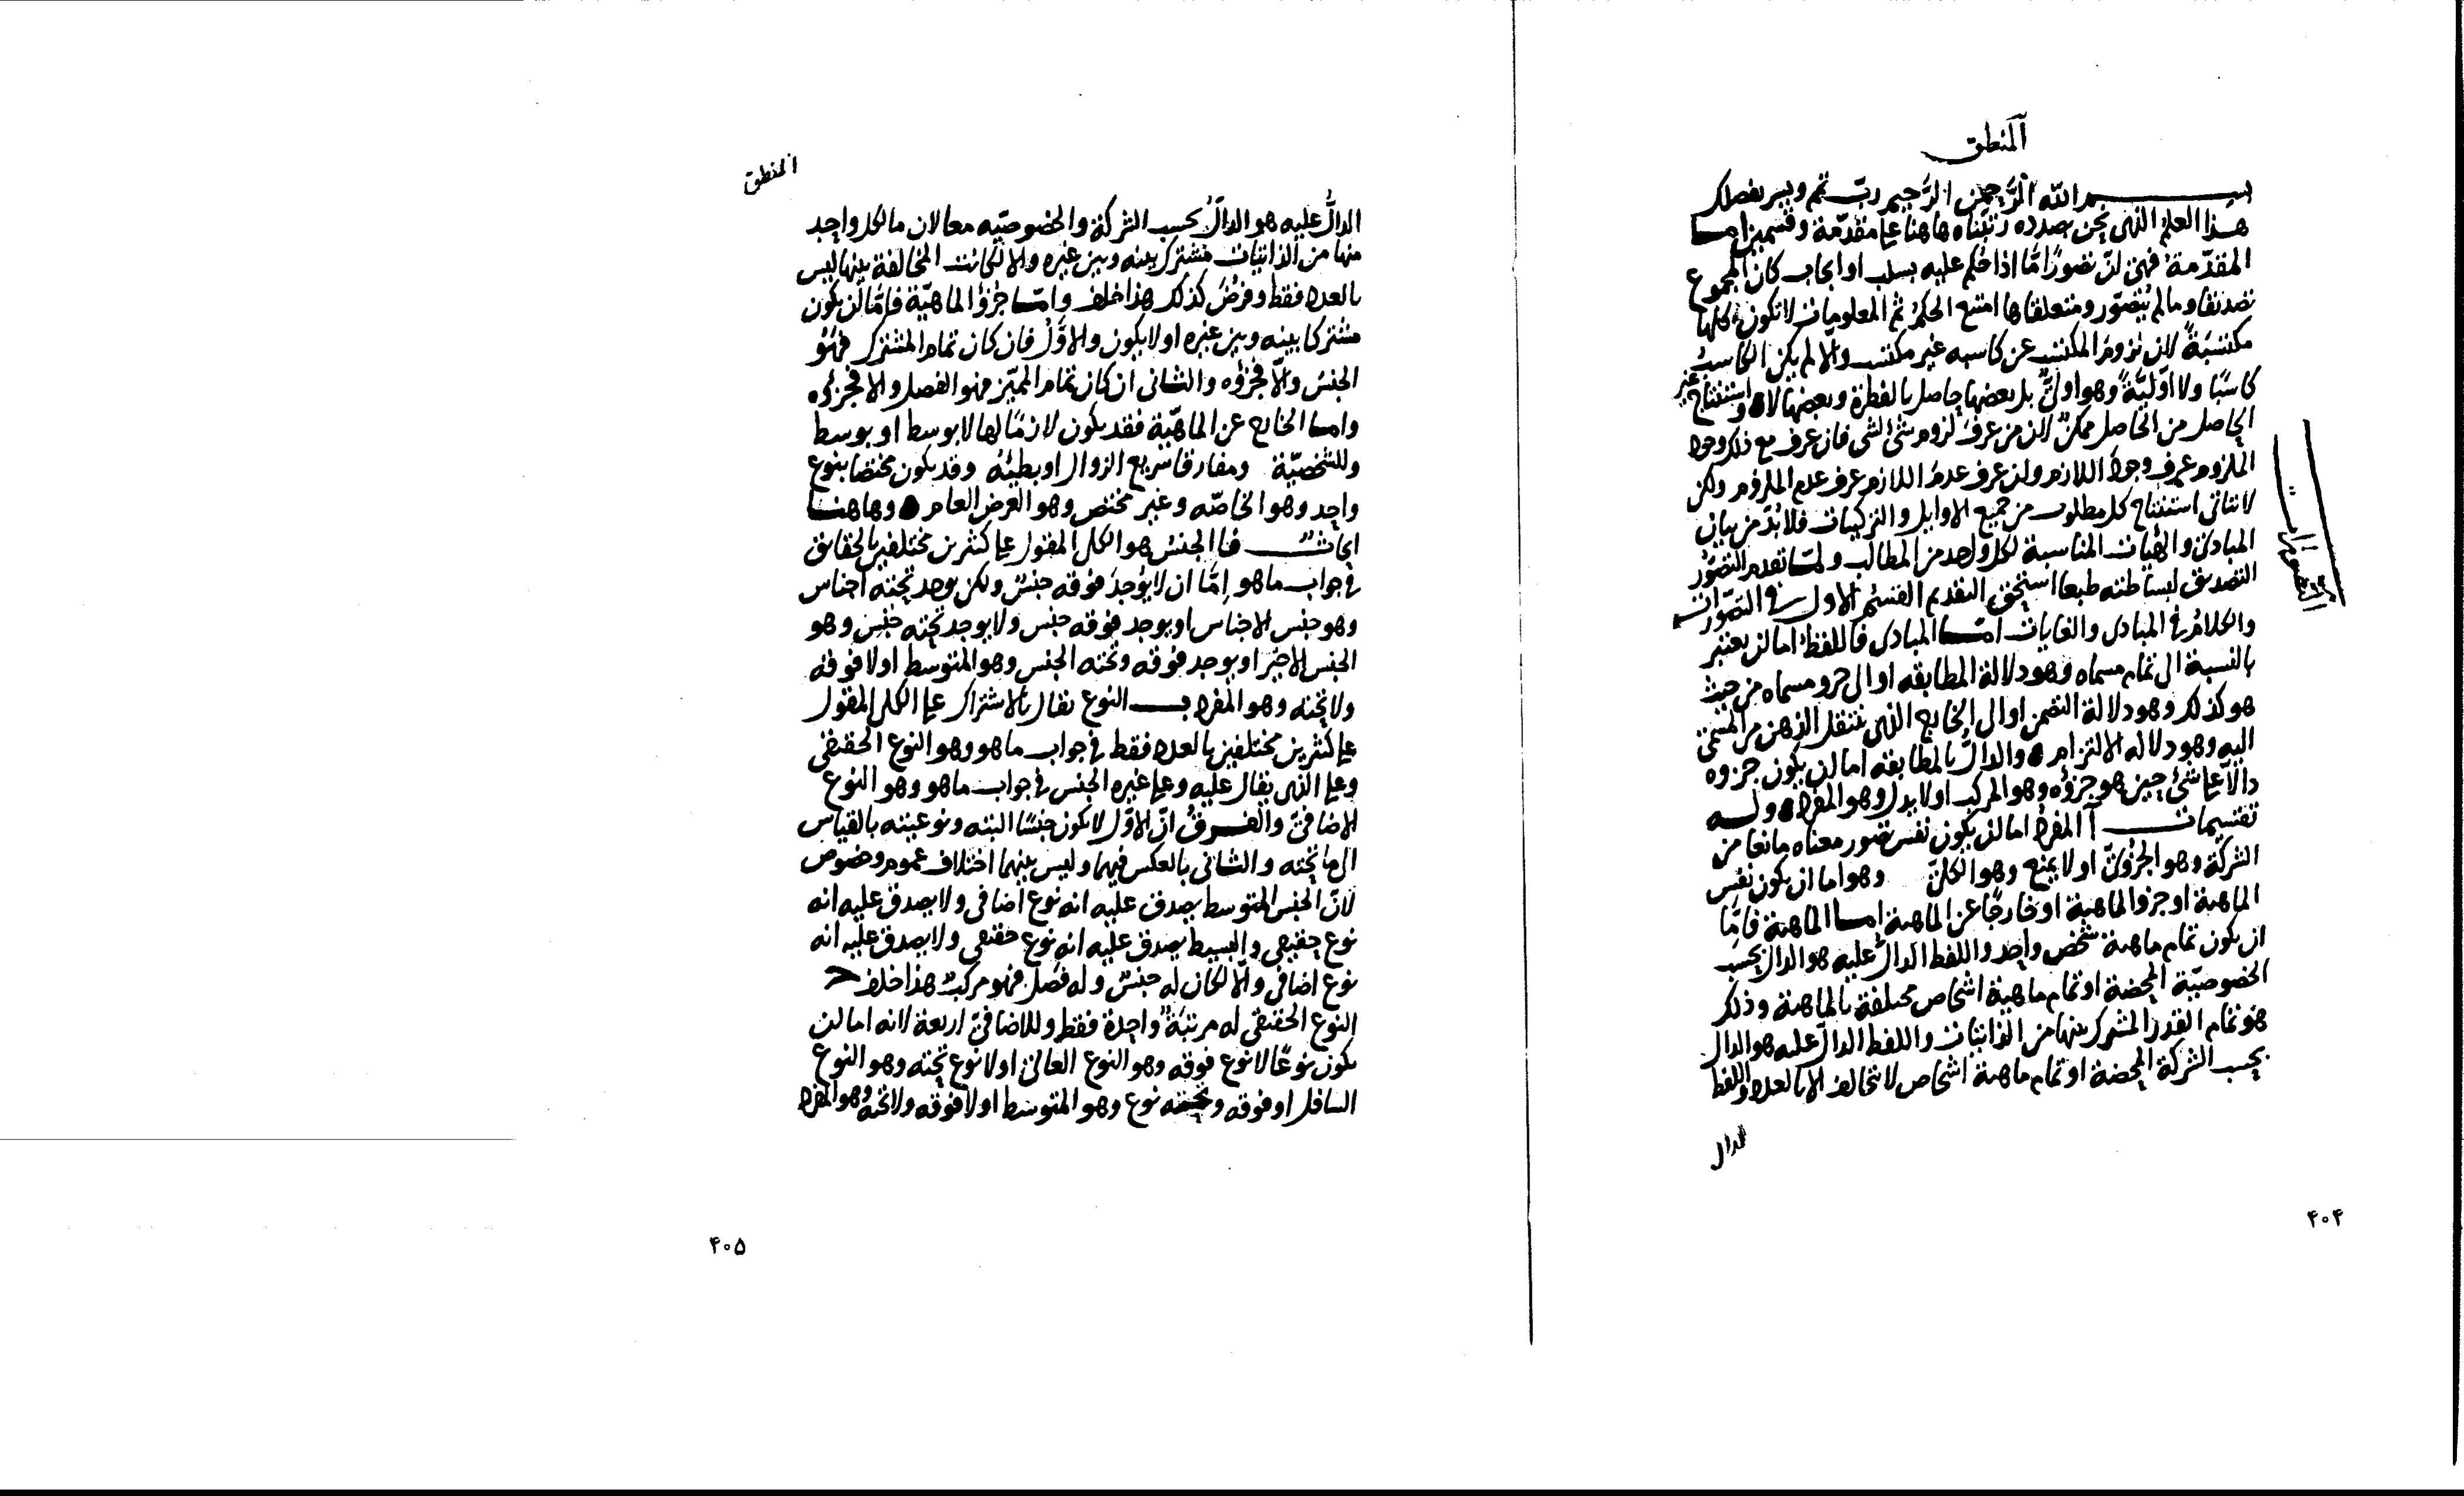 المنطق
بسم الله الرحمن الرحيم رب تمم ويسر بفضلك
هذا العلم الذى نحن بصدده رتبناه هاهنا على مقدمة وقسمين اما
المقدمة فهى ان تصورا ما اذا حكم عليه بسلب او ايجاب كان المجموع
تصديقا وما لم يتصور ومتعلقاها امتنع الحكم ثم المعلومات لا تكون كلها
مكتسبة لان لزوم المكتسب عن كاسبه غير مكتسب والا لم يكن الكاسب
كاسبا ولا اولية وهو اولى بل بعضها حاصل بالفطرة وبعضها لا واستنتاج غير
الحاصل من الحاصل ممكن لان من عرف لزوم شئ لشئ فان عرف مع ذلك وجود
الملزوم عرف وجود اللازم وان عرف عدم اللازم عرف عدم الملزوم ولكن
لا يتاتى استنتاج كل مطلوب من جميع الاوايل والتركيبات فلا بد من بيان
المبادئ والهيات المناسبة لكل واحد من المطالب ولما تقدم التصور
التصديق لبساطته طبعا استحق التقديم القسم الاول فى التصورات
والكلام فى المبادى والغايات اما المبادى فاللفظ اما ان يعتبر
بالنسبة الى تمام مسماه وهو دلالة المطابقه او الى جزو مسماه من حيث
هو كذلك وهو دلالة التضمن او الى الخارج الذى ينتقل الذهن من المسمى
اليه وهو دلاله الالتزام والدال بالمطابقه اما ان يكون جزوه
دالا على شئ حين هو جزؤه وهو المركب او لا يدل وهو المفرد وله
تقسيمات آ المفرد اما ان يكون نفس تصور معناه مانعا من
الشركة وهو الجزوئى او لا يمنع وهو الكلى وهو اما ان يكون نفس
الماهية او جزو الماهية او خارجا عن الماهية اما الماهية فاما
ان يكون تمام ماهية شخص واحد واللفظ الدال عليه هو الدال بحسب
الخصوصية المحضة او تمام ماهية اشخاص مختلفة بالماهية وذلك
هو تمام القدر المشترك بينها من الذاتيات واللفظ الدال عليه هو الدال
بحسب الشركة المحضة او تمام ماهية اشخاص لا تخالف الا بالعدد واللفظ
الدال
۴۰۴
المنطق
الدال عليه هو الدال بحسب الشركة والخصوصيه معا لان ما لكل واحد
منها من الذاتيات مشترك بينه وبين غيره والا لكانت المخالفة بينها ليس
بالعدد فقط وفرض كذلك هذا خلف واما جزؤ الماهية فاما ان يكون
مشتركا بينه وبين غيره او لا يكون والاول فان كان تمام المشترك فهو
الجنس والا فجزؤه والثانى ان كان تمام المميز فهو الفصل والا فجزؤه
واما الخارج عن الماهية فقد يكون لازما لها لا بوسط او بوسط
وللشخصية ومفارقا سريع الزوال او بطيئه وقد يكون مختصا بنوع
واحد وهو الخاصه وغير مختص وهو العرض العام وهاهنا
ابحاث فا الجنس هو الكلى المقول على كثيرين مختلفين بالحقايق
فى جواب ما هو اما ان لا يوجد فوقه جنس ولكن يوجد تحته اجناس
وهو جنس الاجناس او يوجد فوقه جنس ولا يوجد تحته جنس وهو
الجنس الاخير او يوجد فوقه وتحته الجنس وهو المتوسط او لا فوقه
ولا تحته وهو المفرد ب النوع يقال بالاشتراك على الكلى المقول
على كثيرين مختلفين بالعدد فقط فى جواب ما هو وهو النوع الحقيقى
وعلى الذى يقال عليه وعلى غيره الجنس فى جواب ما هو وهو النوع
الاضافى والفرق ان الاول لا يكون جنسا البته ونوعيته بالقياس
الى ما تحته والثانى بالعكس فيهما وليس بينهما اختلاف عموم وخصوص
لان الجنس المتوسط يصدق عليه انه نوع اضافى ولا يصدق عليه انه
نوع حقيقى والبسيط يصدق عليه انه نوع حقيقى ولا يصدق عليه انه
نوع اضافى والا لكان له جنس وله فصل فهو مركب هذا خلف ح
النوع الحقيقى له مرتبة واحدة فقط وللاضافى اربعة لانه اما ان
يكون نوعا لا نوع فوقه وهو النوع العالى او لا نوع تحته وهو النوع
السافل او فوقه وتحته نوع وهو المتوسط او لا فوقه ولا تحته وهو المفرد
۴۰۵